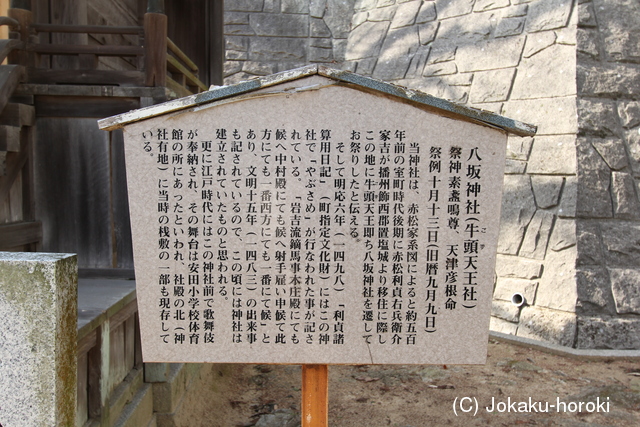 八坂神社(牛頭天王社)
ごず
祭神 素盞鳴尊、天津彦根命
祭例 十月十三日(旧暦九月九日)
当神社は、赤松家系図によると約五百
年前の室町時代後期に赤松利貞右兵衛介
家吉が播州飾西郡置塩城より移住に際し
この地に牛頭天王即ち八坂神社を遷して
お祭りしたと伝える。
そして明応六年(一四九八)「利貞諸
算用日記」(町指定文化財)にはこの神
社で「やぶさめ」が行なわれた事が記さ
れている。「岩吉流鏑馬事本庄殿にても
候へ中村殿にても候へ射手雇い申候て此
方にても一番西方にても一番にて候」と
あり、文明十五年(一四八三)の出来事
も記されているので、この頃には神社は
建立されていたものと思われる。
更に江戸時代にはこの神社前で歌舞伎
が奉納され、その舞台は安田小学校体育
館の所にあったといわれ、社殿の北(神
社有地)に当時の桟敷の一部も現存して
いる。
(C) Jokaku-horoki